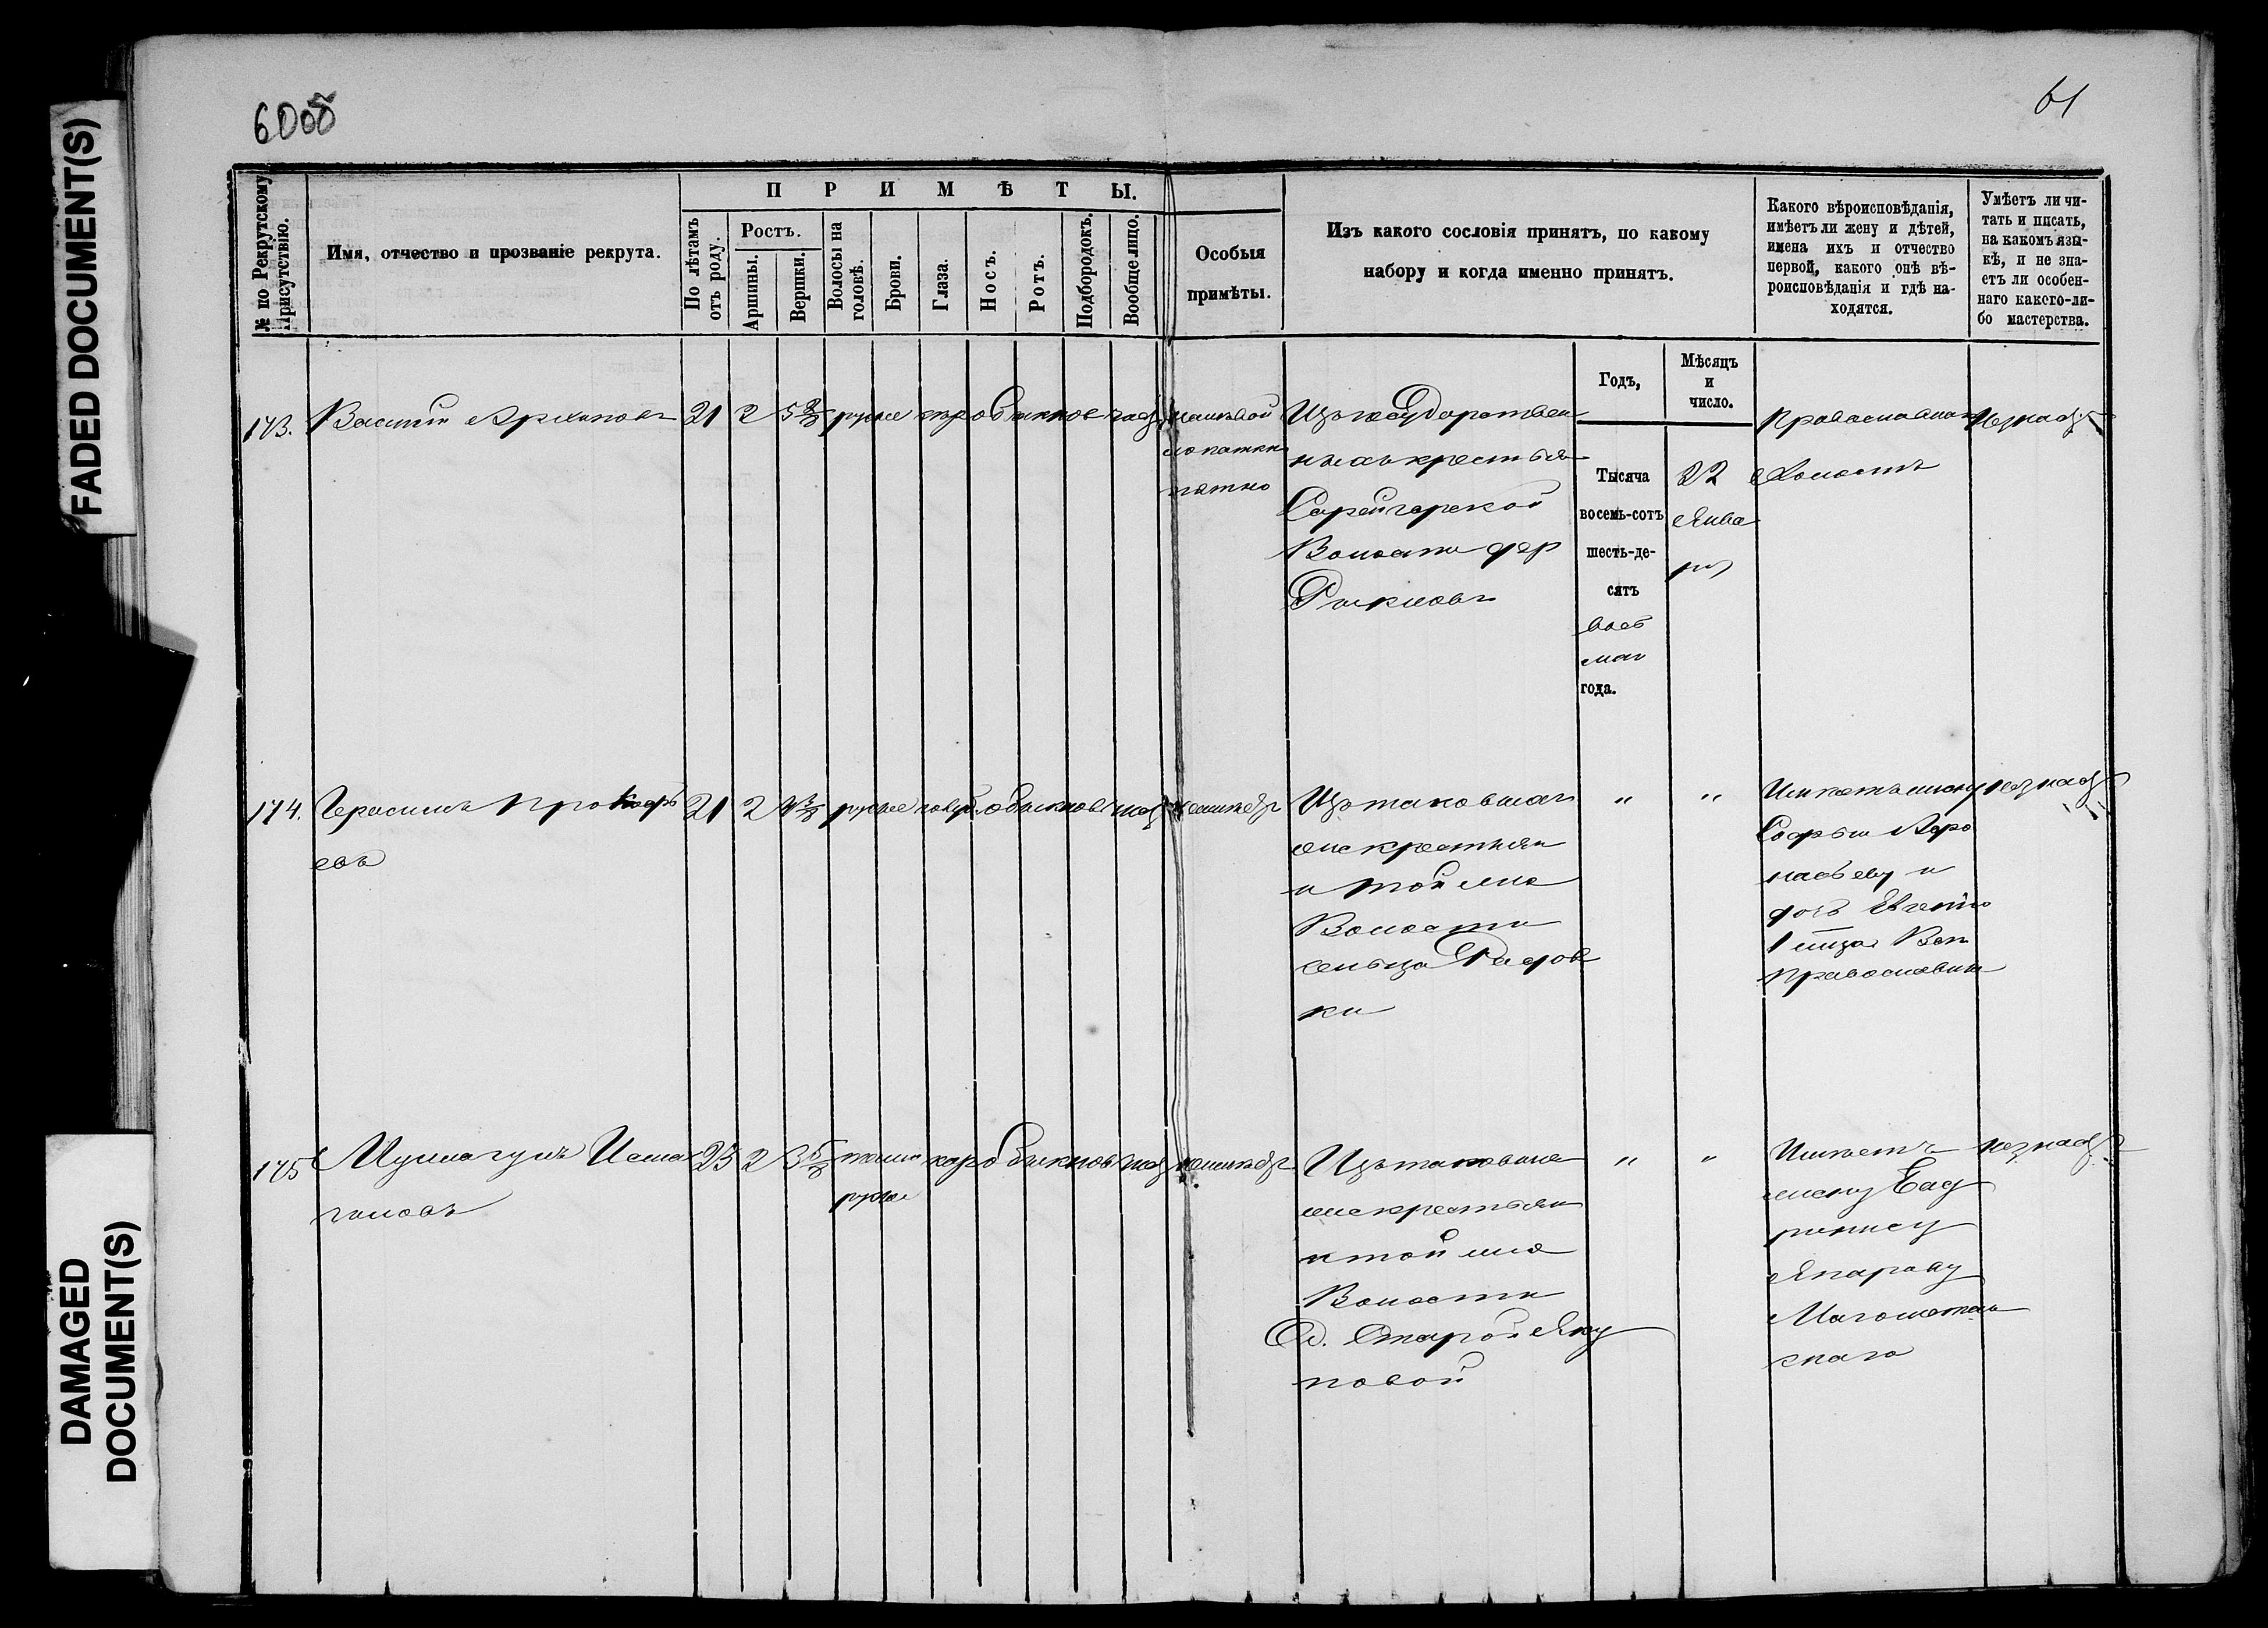 FADED DOCUMENT(S)
DAMAGED
DOCUMENT(S)
60 об
61
№ по Рекрутскому
Присутствію.
Имя, отчество и прозваніе рекрута.
ПРИМѢТЫ.
По лѣтамъ
отъ роду.
Ростъ.
Аршины.
Вершки.
Волосы на
головѣ.
Брови.
Глаза.
Носъ.
Ротъ.
Подбородокъ.
Вообще лицо.
Особыя
примѣты.
Изъ какого сословія принятъ, по какому
набору и когда именно принятъ.
Какого вѣроисповѣданія,
имѣетъ ли жену и дѣтей,
имена ихъ и отчество
первой, какого онѣ вѣ-
роисповѣданія и гдѣ на-
ходятся.
Умѣетъ ли чи-
тать и писать,
на какомъ язы-
кѣ, и не зна-
етъ ли особен-
наго какого-ли-
бо мастерства.
Годъ,
Мѣсяцъ
и
число.
173.
Василій Архиповъ
21
2
5 2/8
русые
сѣр
обыкнов
чист
на лѣвой
лопатки
пятно
Изъ государствен
ныхъ крестьян
Волости дер
Тысяча
восемь-сотъ
шесть-де-
сятъ
вось
маго
года.
22
Янва
ря
Православнаго
Холостъ
незнаетъ
174.
Герасимъ Прокофь
евъ
21
2
русые
голуб
обыкнов
чист
неимѣетъ
Изъ таковыхъ
же крестьян
и той же
Волости
сельца
ки
"
"
Имѣетъ жену
Софью
насьеву и
дочь Евгенію
Православн
незнаетъ
175
Исма
гиловъ
23
2
3 5/8
темно
русые
кар
обыкнов
чист
неимѣетъ
Изъ таковыхъ
же крестьян
и той же
Волости
Д. Старой Яку
повой
"
"
Имѣетъ
жену Бад
ринису
Япарову
Магометан
скаго
незнаетъ